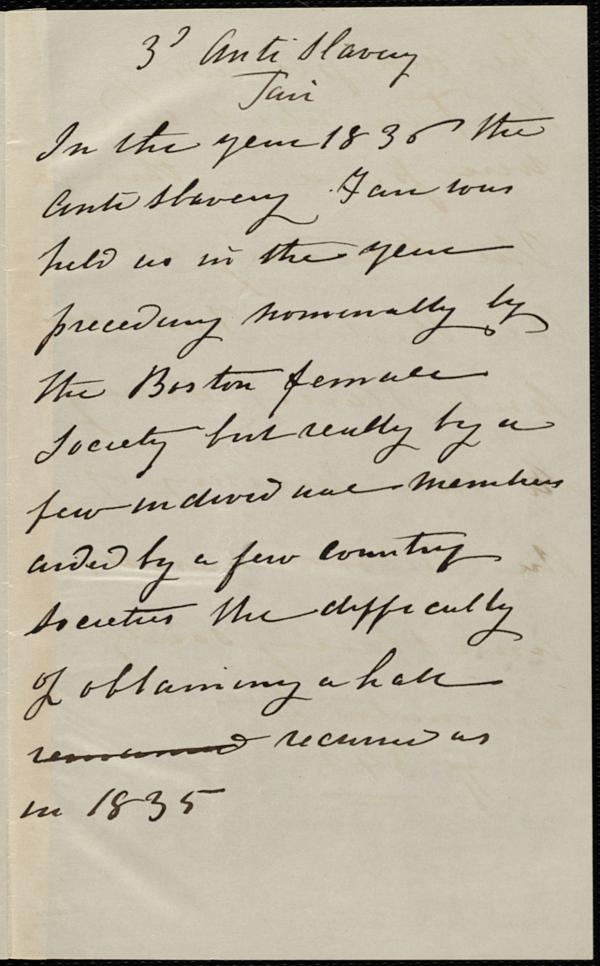 3d Anti Slavery
Fair
In the year 1836 the
Anti slavery Fair was
held as in the year
preceding nominally by
the Boston female
Society but really by a
few individual members
aided by a few country
societies the difficulty
of obtaining a hall
remained recurred as
in 1835